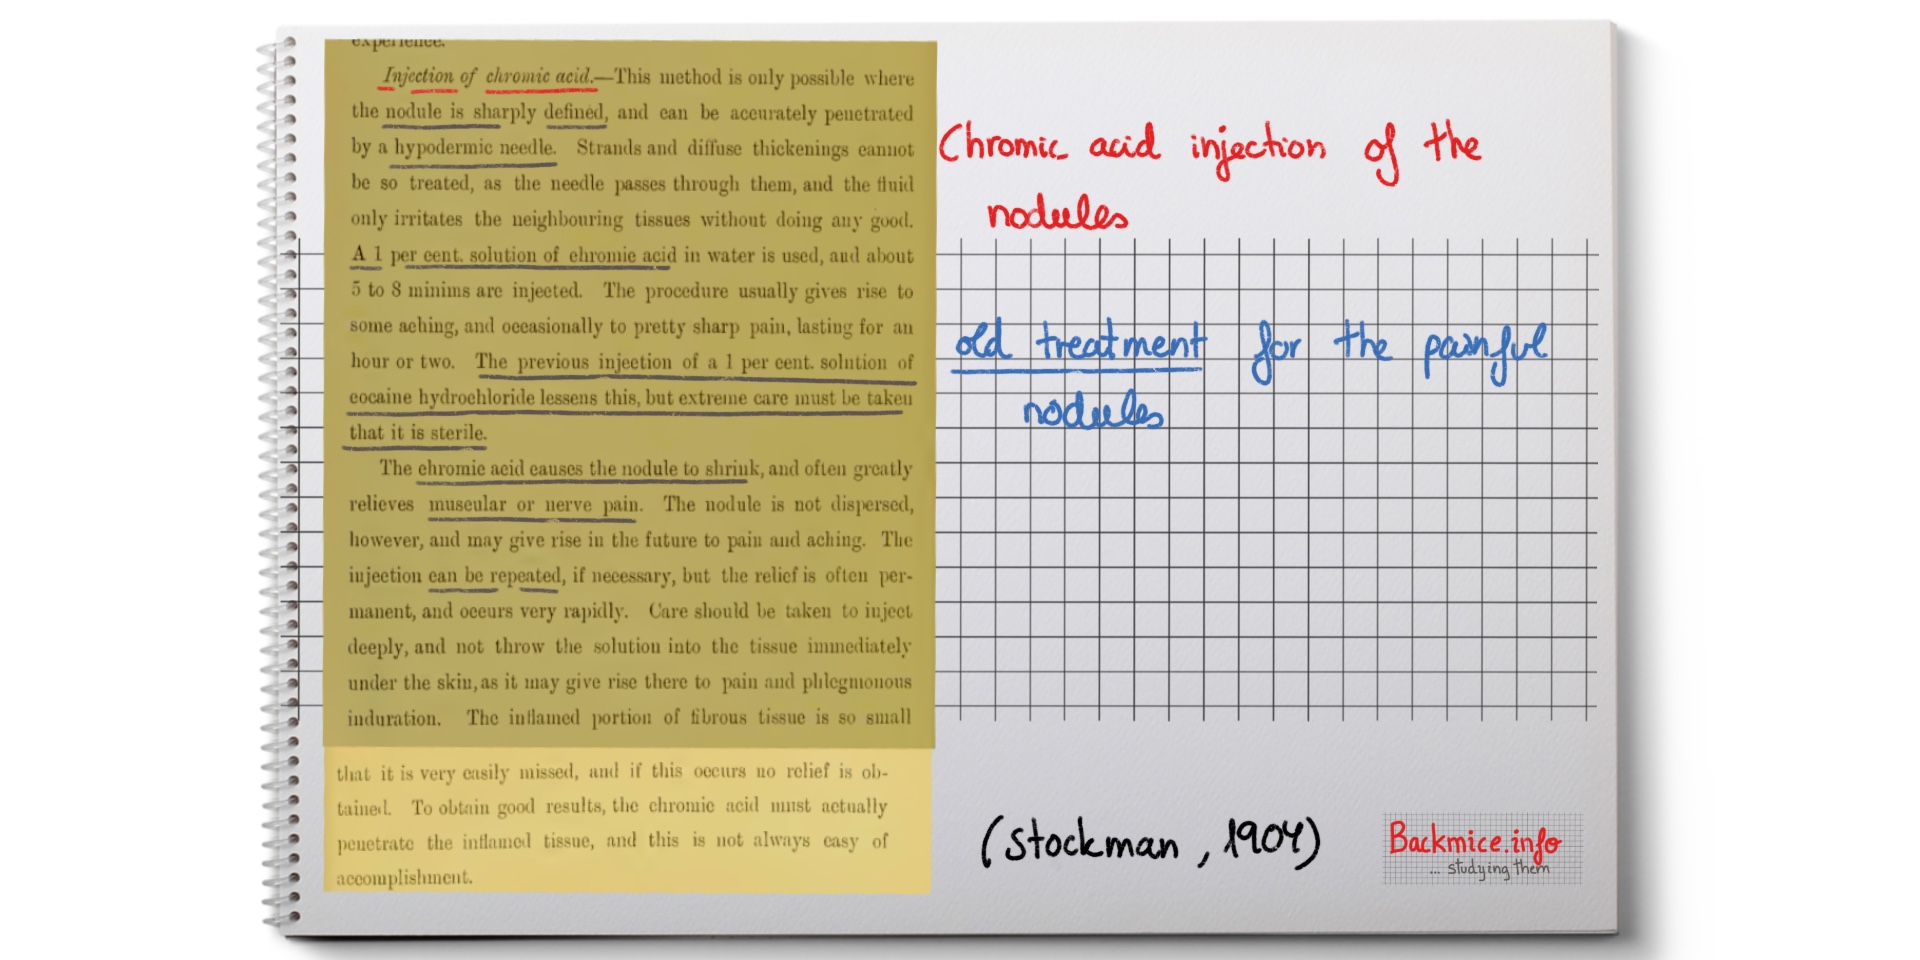 experience.
Injection of chromic acid.—This method is only possible where
the nodule is sharply defined, and can be accurately penetrated
by a hypodermic needle. Strands and diffuse thickenings cannot
be so treated, as the needle passes through them, and the fluid
only irritates the neighbouring tissues without doing any good.
A 1 per cent. solution of chromic acid in water is used, and about
5 to 8 minims are injected. The procedure usually gives rise to
some aching, and occasionally to pretty sharp pain, lasting for an
hour or two. The previous injection of a 1 per cent. solution of
cocaine hydrochloride lessens this, but extreme care must be taken
that it is sterile.
The chromic acid causes the nodule to shrink, and often greatly
relieves muscular or nerve pain. The nodule is not dispersed,
however, and may give rise in the future to pain and aching. The
injection can be repeated, if necessary, but the relief is often per-
manent, and occurs very rapidly. Care should be taken to inject
deeply, and not throw the solution into the tissue immediately
under the skin, as it may give rise there to pain and phlegmonous
induration. The inflamed portion of fibrous tissue is so small
that it is very easily missed, and if this occurs no relief is ob-
tained. To obtain good results, the chromic acid must actually
penetrate the inflamed tissue, and this is not always easy of
accomplishment.
Chromic acid injection of the
nodules
old treatment for the painful
nodules
(Stockman, 1904)
Backmice.info
... studying them